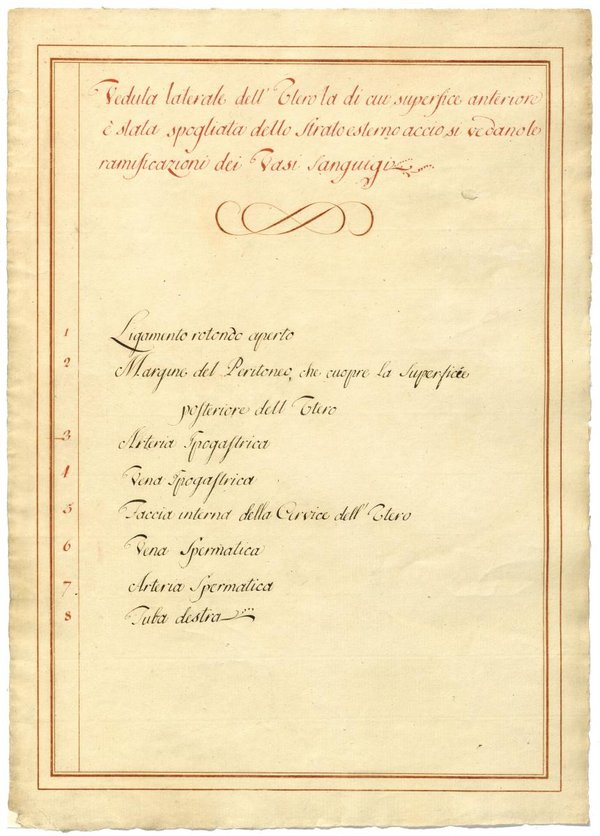 Veduta laterale dell' Utero la di cui superfice anteriore
è stata spogliata dello strato esterno accio si vedano le
ramificazioni dei Vasi Sanguigi
1 Ligamento rotondo aperto
2 Margine del Peritoneo, che cuopre la Superficie
posteriore dell Utero
3 Arteria Ipogastrica
4 Vena Ipogastrica
5 Faccia interna della Cervice dell' Utero
6 Vena Spermatica
7. Arteria Spermatica
8 Tuba destra